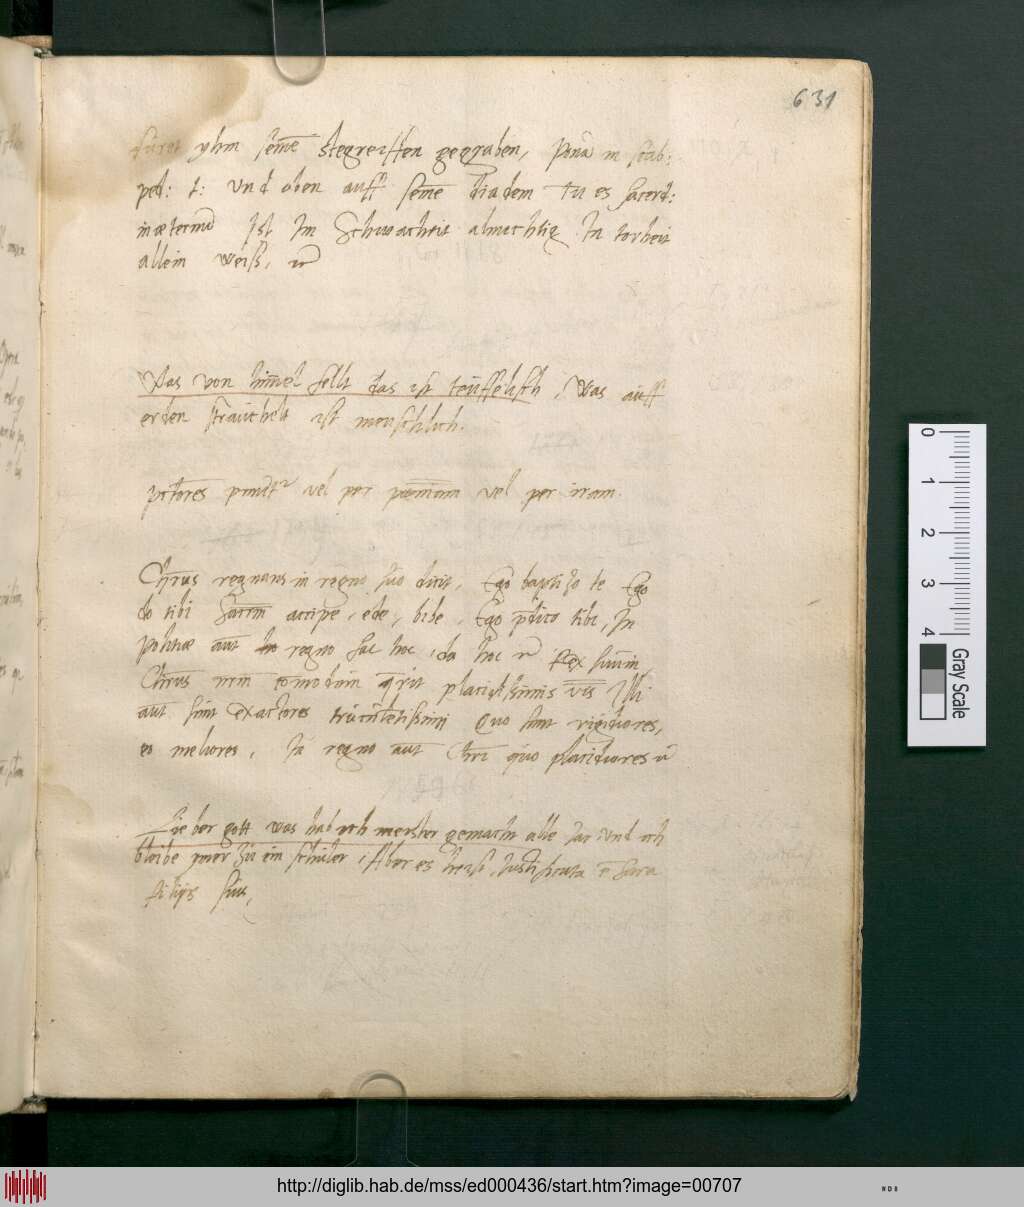 631
furet yhm seine stegreiffen gegraben, Pona in scab:
ped: t: Und oben auff seine diadem Tu es sacerd:
in æternū Ist Im Schwacheit almechtig In torheit
allein weiß,
Was von himel fellt das ist teuffelisch, Was auff
erden strauchelt ist menschlich.
per pœnam vel per iram
Christus regnans in regno suo dicit, Ego baptizo te Ego
do tibi accipe, ede, bibe, Ego tibi, In
Politiæ aut regno fac hoc, da hoc
placidissimis Illi
aut sunt exactores truculetissimi Quo sunt rigidiores,
eo meliores, In regno aut Chri quo placidiores
Lieber gott was hab ich meister gemacht alle Iar und ich
bleibe ymer zu ein schuler, Aber es heist, Iustificata e
filijs suis,
0 1 2 3 4 Gray Scale
http://diglib.hab.de/mss/ed000436/start.htm?image=00707